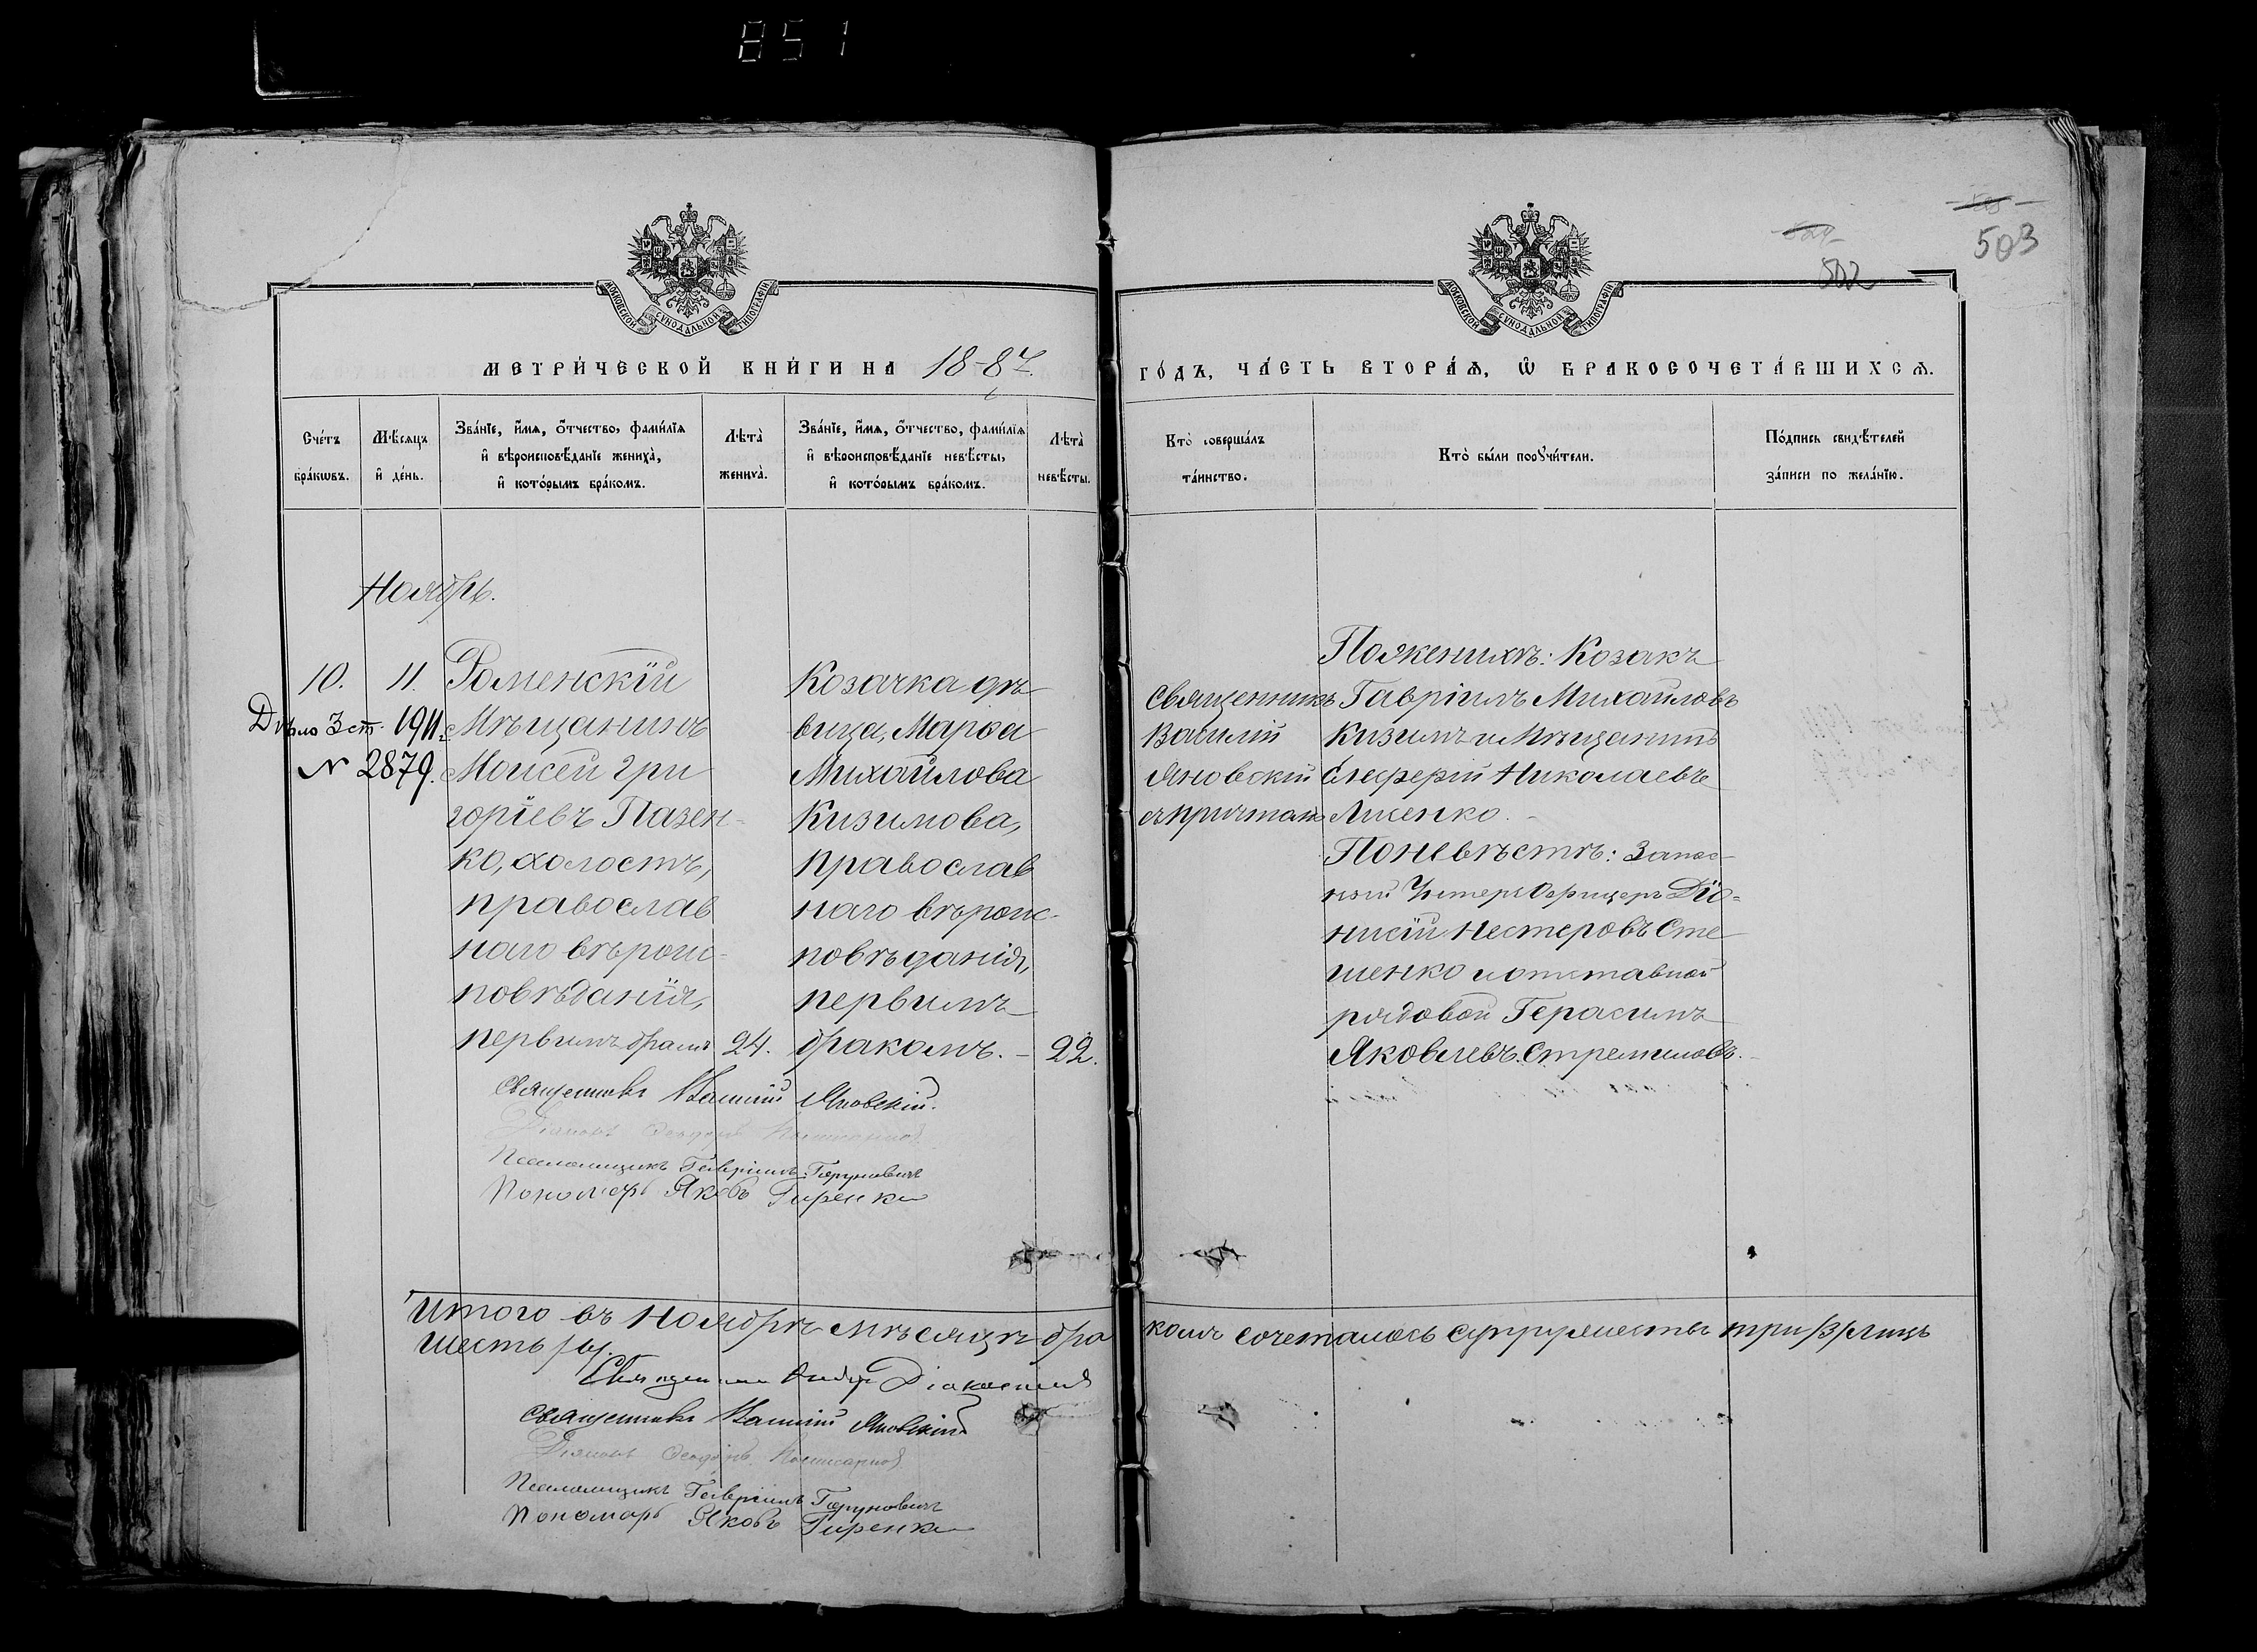 851
503
502
МОСКОВСКОЙ СѴНОДАЛЬНОЙ ТИПОГРАФІИ
МОСКОВСКОЙ СѴНОДАЛЬНОЙ ТИПОГРАФІИ
МЕТРИ́ЧЕСКОЙ КНИ́ГИ НА 1887.
ГО́ДЪ, ЧА́СТЬ ВТОРА́Ѧ, Ѽ БРАКОСОЧЕТА́ВШИХСѦ.
Сче́тъ бра́кѡвъ.
Мѣ́сѧцъ и҆ де́нь.
Зва́нїе, и҆́мѧ, ѻ҆́тчество, фами́лїѧ
и҆ вѣроисповѣ́данїе жениха̀,
и҆ кото́рымъ бра́комъ.
Лѣта̀ жениха̀.
Зва́нїе, и҆́мѧ, ѻ҆́тчество, фами́лїѧ
и҆ вѣроисповѣ́данїе невѣ́сты,
и҆ кото́рымъ бра́комъ.
Лѣта̀ невѣ́сты.
Кто̀ соверша́лъ
та́инство.
Кто̀ бы́ли порꙋчи́тели.
По́дпись свидѣ́телей
за́писи по жела́нїю.
Ноябрь.
10.
11.
Дѣло 3 ст. 1911 г.
№ 2879.
Роменскій
Мѣщанинъ
Моисей Гри
горіевъ Пазен-
ко, холостъ,
православ
наго вѣроис-
повѣданія,
первимъ браком
24.
Козачка дѣ
вица, Марѳа
Михайлова
Кизимова,
православ
наго вѣроис-
повѣданія,
первимъ
бракомъ. –
22.
Священникъ
Василій
Яновскій
съ причтомъ
По женихѣ: Козакъ
Гавріилъ Михайловъ
Кизимъ и Мѣщанинъ
Елеферій Николаевъ
Лисенко. –
По невѣстѣ: Запас-
ной Унтеръ Офицеръ Діо-
нисій Нестеровъ Сте
шенко и отставной
рядовой Герасимъ
Яковлевъ Стремиловъ.
Священникъ Василій Яновскій.
Діаконъ Ѳеодоръ
Псаломщикъ Гавріилъ
Пономарь Яковъ Гиренко
Итого въ Ноябрѣ мѣсяцѣ бра
комъ сочеталось супружествъ три /3/ лицъ
шесть /6/.
Священникъ
Священникъ Василій Яновскій
Діаконъ Ѳеодоръ
Псаломщикъ Гавріилъ
Пономарь Яковъ Гиренко